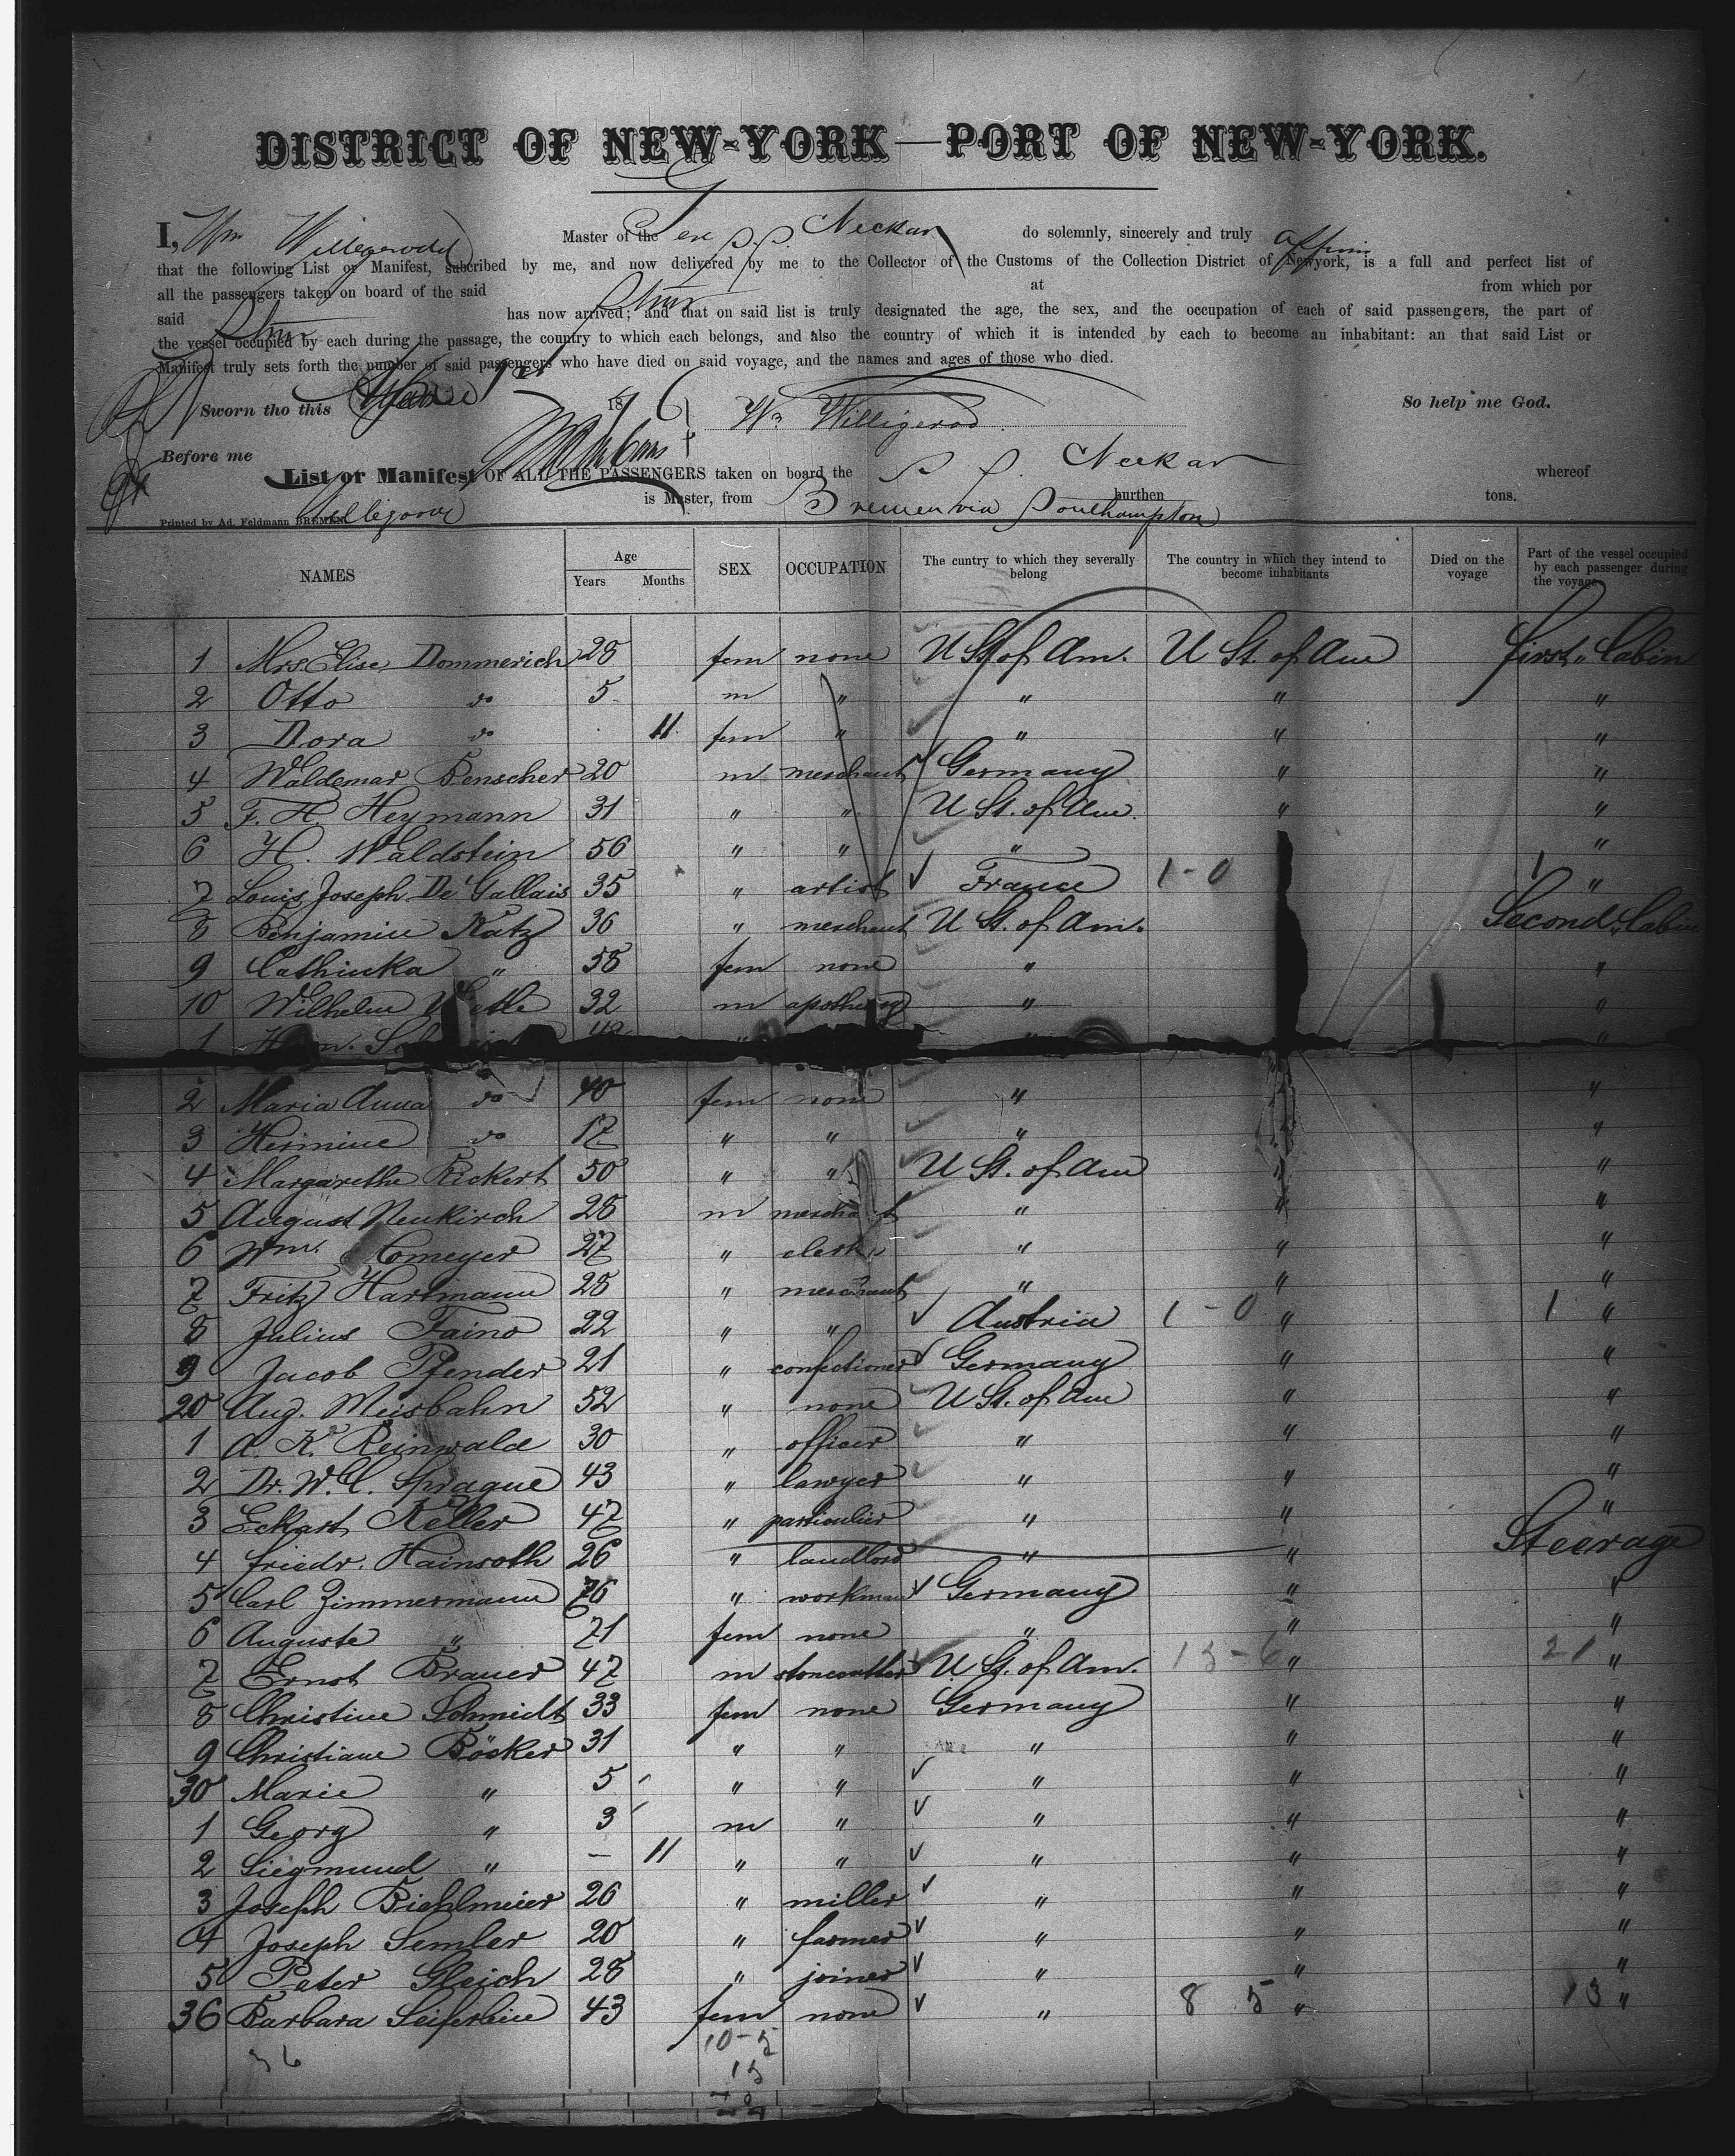 DISTRICT OF NEW-YORK—PORT OF NEW-YORK.
I, Wm Willegerodd Master of the Ger S.S. Neckar do solemnly, sincerely and truly affirm
that the following List or Manifest, subcribed by me, and now delivered by me to the Collector of the Customs of the Collection District of Newyork, is a full and perfect list of
all the passengers taken on board of the said at from which por
said Ship has now arrived; and that on said list is truly designated the age, the sex, and the occupation of each of said passengers, the part of
the vessel occupied by each during the passage, the country to which each belongs, and also the country of which it is intended by each to become an inhabitant: an that said List or
Manifest truly sets forth the number of said passengers who have died on said voyage, and the names and ages of those who died.
Sworn tho this 1876 Wm Willigerod So help me God.
Before me
List or Manifest OF ALL THE PASSENGERS taken on board the S. S. Neckar whereof
is Master, from Bremen via Southampton burthen tons.
Printed by Ad. Feldmann BREMEN.
NAMES Age SEX OCCUPATION The cuntry to which they severally belong The country in which they intend to become inhabitants Died on the voyage Part of the vessel occupied by each passenger during the voyage
Years Months
1 Mrs. Elise Dommerich 28 fem none U St. of Am. U St. of Am first Cabin
2 Otto do 5 m " " " "
3 Dora do 11 fem " " " "
4 Waldemar Benscher 20 m merchant Germany " "
5 F. H. Heymann 31 " " U St. of Am. " "
6 H. Waldstein 56 " " " "
7 Louis Joseph De Gallais 35 " artist France 1-0 1 "
8 Benjamin Katz 36 " merchant U St. of Am. Second Cabin
9 Cathinka " 58 fem none " "
10 Wilhelm 32 m apothecary " "
1 " "
2 Maria Anna do 40 fem none " "
3 Hermine do 17 " " " "
4 Margarethe Rickert 50 " " U St. of Am "
5 August Neukirch 28 m merchant " " "
6 Wm. Comeyer 27 " clerk " " "
7 Fritz Hartmann 28 " merchant " " "
8 Julius Faino 22 " " Austria 1-0 " 1 "
9 Jacob Pfender 21 " confectioner Germany " "
20 Aug. Meisbahn 52 " none U St. of Am " "
1 A. K. Reinwald 30 " officer " " "
2 Dr. W. C. Sprague 43 " lawyer " " "
3 Eckart Keller 47 " particulier " " "
4 friedr. Hainroth 26 " landlord " " Steerage
5 Carl Zimmermann 76 " workman Germany " "
6 Auguste " 71 fem none " " "
7 Ernst Brauer 47 m stonecutter U St. of Am. 13-6 " 21 "
8 Christine Schmidt 33 fem none Germany " "
9 Christiane Böcker 31 " " " " "
30 Marie " 5 " " " " "
1 Georg " 3 m " " " "
2 Siegmund " — 11 " " " " "
3 Joseph Biehlmeier 26 " miller " " "
4 Joseph Semler 20 " farmer " " "
5 Peter Gleich 28 " joiner " " "
36 Barbara Seiferlein 43 fem none " 8 5 " 13 "
36 10-5
13